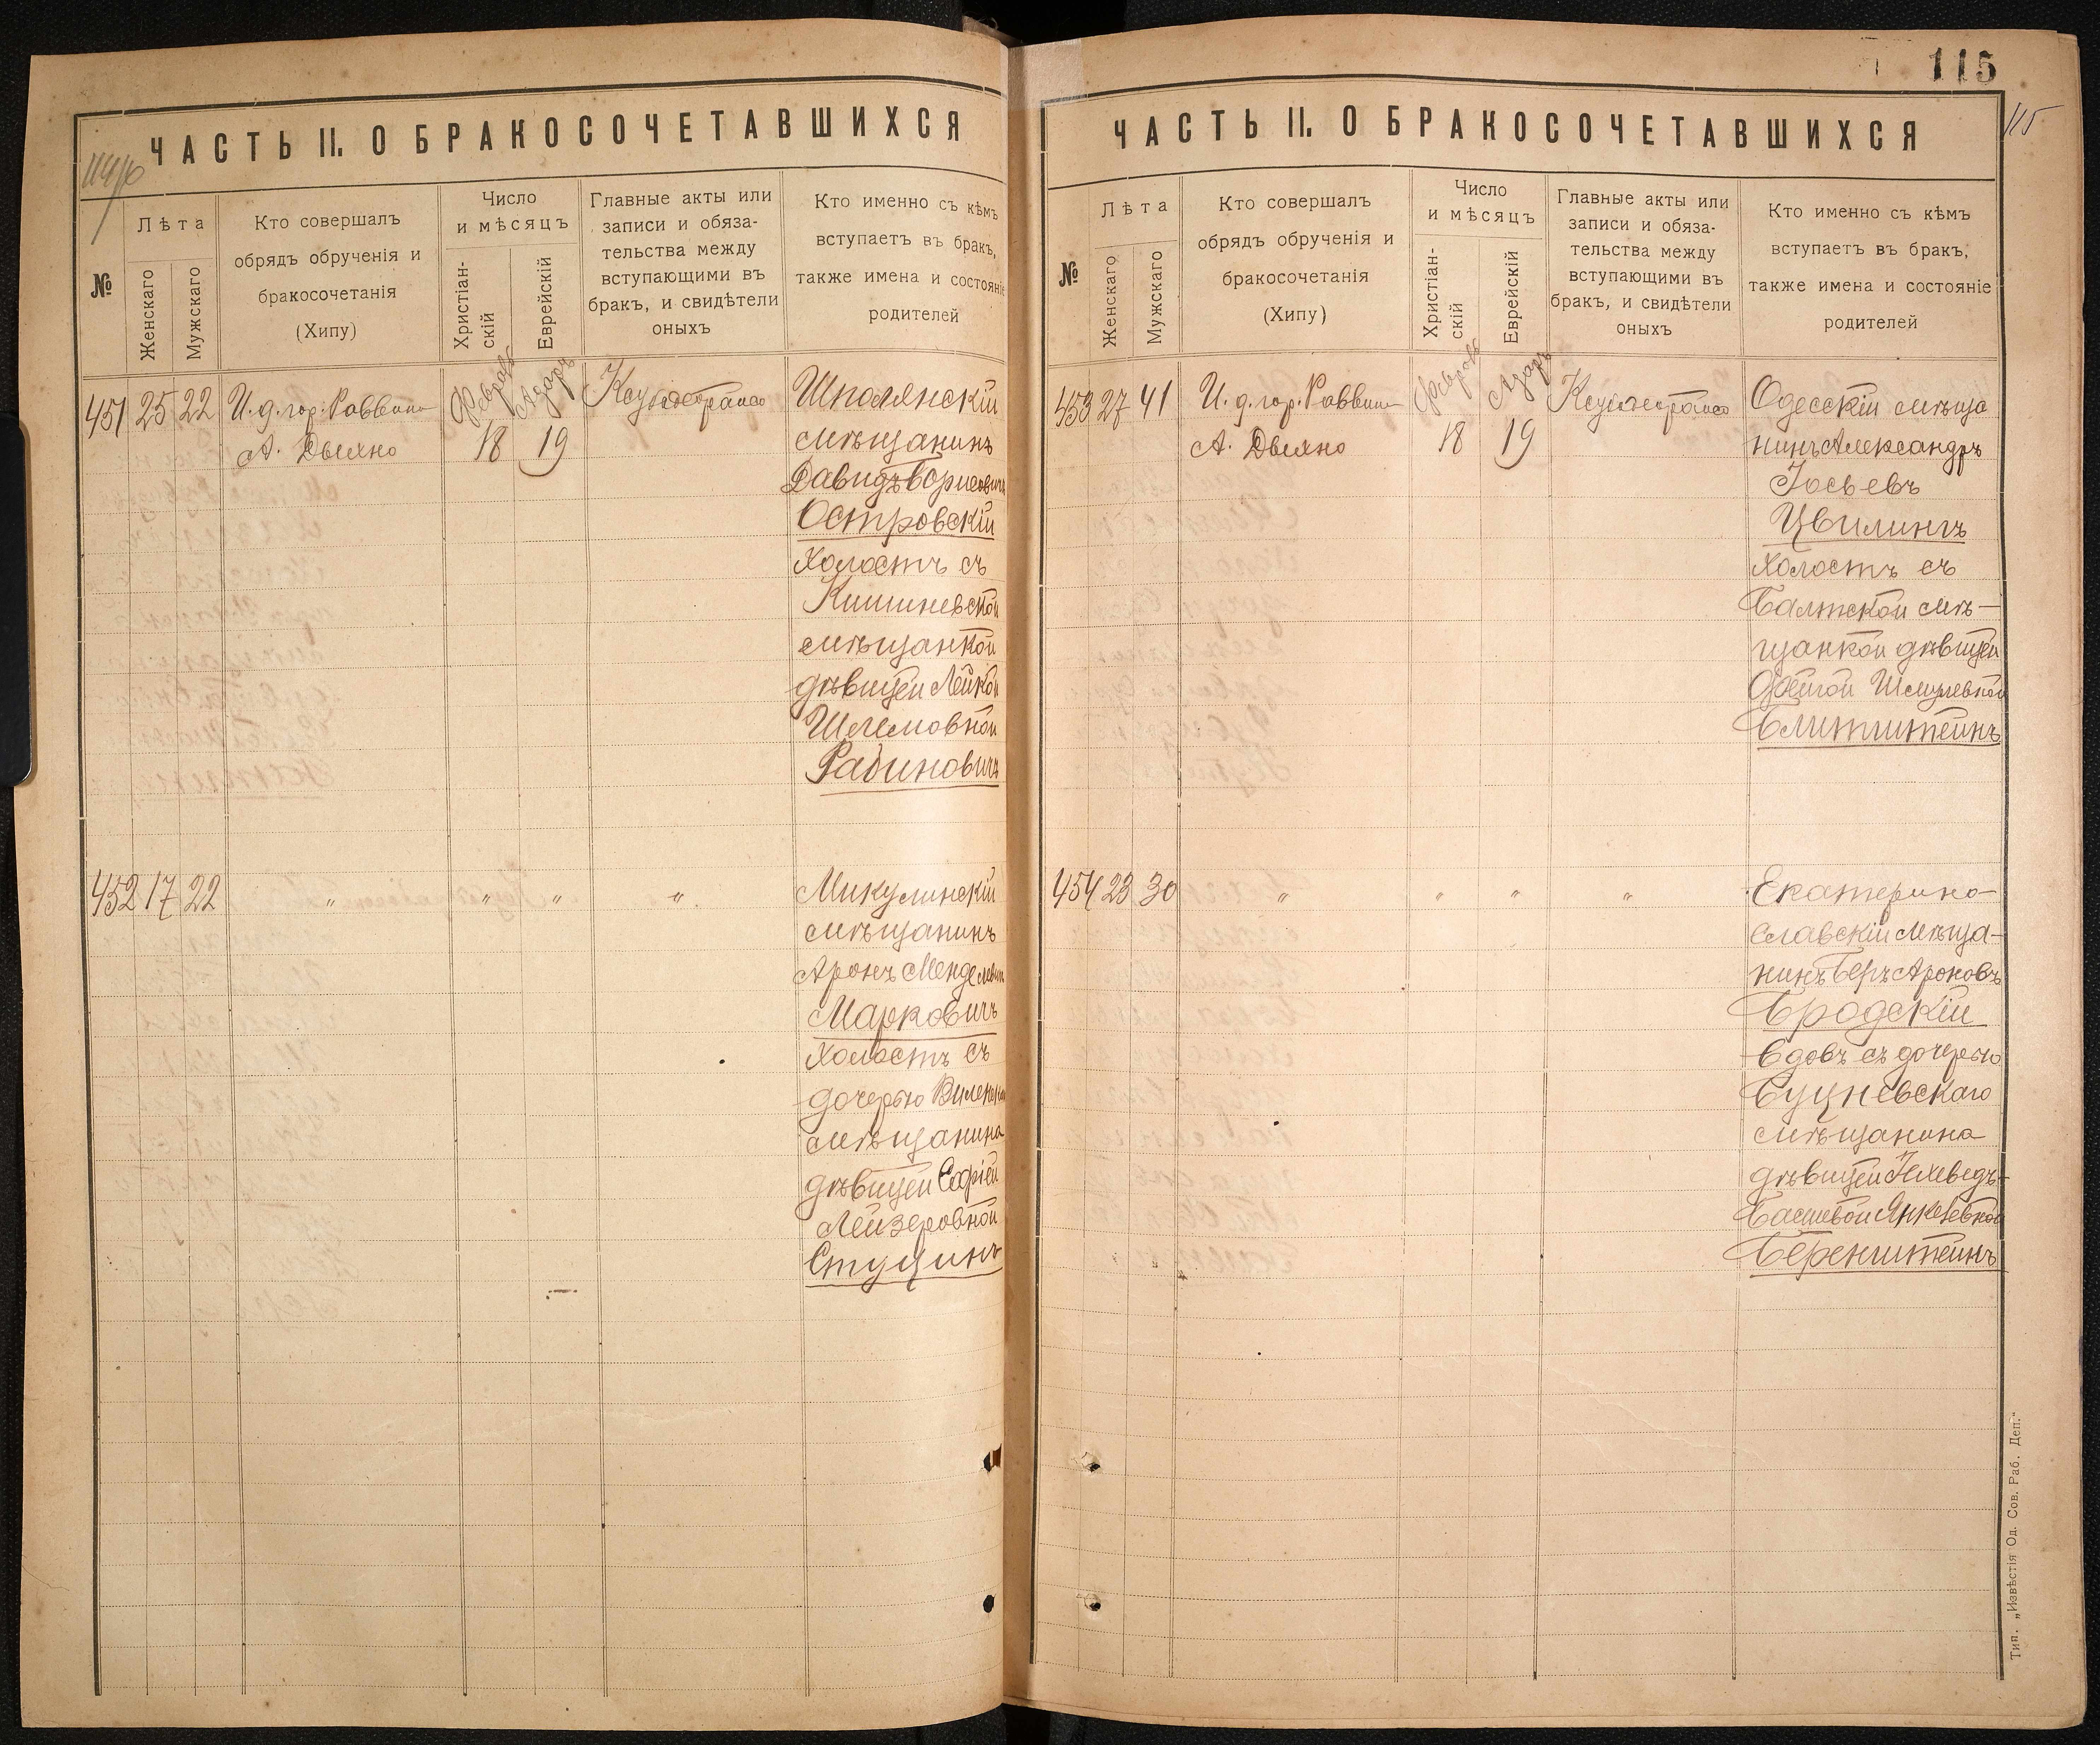 ЧАСТЬ II. О БРАКОСОЧЕТАВШИХСЯ
№
Лѣта
Женскаго
Мужскаго
Кто совершалъ
обрядъ обрученія и
бракосочетанія
(Хипу)
Число
и мѣсяцъ
Христіан-
скій
Еврейскій
Главные акты или
записи и обяза-
тельства между
вступающими въ
бракъ, и свидѣтели
оныхъ
Кто именно съ кѣмъ
вступаетъ въ бракъ,
также имена и состояніе
родителей
451 25 22 И. д. гор. Раввина
А. Дыхно
Февраль
18
Адаръ
19
Шполянскій
мѣщанинъ
Давидъ Борисовичъ
Островскій
холостъ съ
Кишиневской
мѣщанкой
дѣвицей Лейкой
Шлемовной
Рабиновичъ
452 17 22 " " " "
Микулинскій
мѣщанинъ
Аронъ Менделевичъ
Марковичъ
холостъ съ
дочерью
мѣщанина
дѣвицей Софіей
Лейзеровной
Ступинъ
115
115
ЧАСТЬ II. О БРАКОСОЧЕТАВШИХСЯ
№
Лѣта
Женскаго
Мужскаго
Кто совершалъ
обрядъ обрученія и
бракосочетанія
(Хипу)
Число
и мѣсяцъ
Христіан-
скій
Еврейскій
Главные акты или
записи и обяза-
тельства между
вступающими въ
бракъ, и свидѣтели
оныхъ
Кто именно съ кѣмъ
вступаетъ въ бракъ,
также имена и состояніе
родителей
453 27 41 И. д. гор. Раввина
А. Дыхно
Февраль
18
Адаръ
19
Одесскій мѣща
нинъ Александръ
Іосьевъ
Цвилингъ
холостъ съ
Балтской мѣ-
щанкой дѣвицей
Шмулевной
Блитштейнъ
454 23 30 " " " "
Екатерино-
славскій мѣща-
нинъ Беръ Ароновъ
Бродскій
вдовъ съ дочерью
Буцневскаго
мѣщанина
дѣвицей
Басшевой Янкелевной
Беренштейнъ
Тип. „Извѣстія Од. Сов. Раб. Деп.“